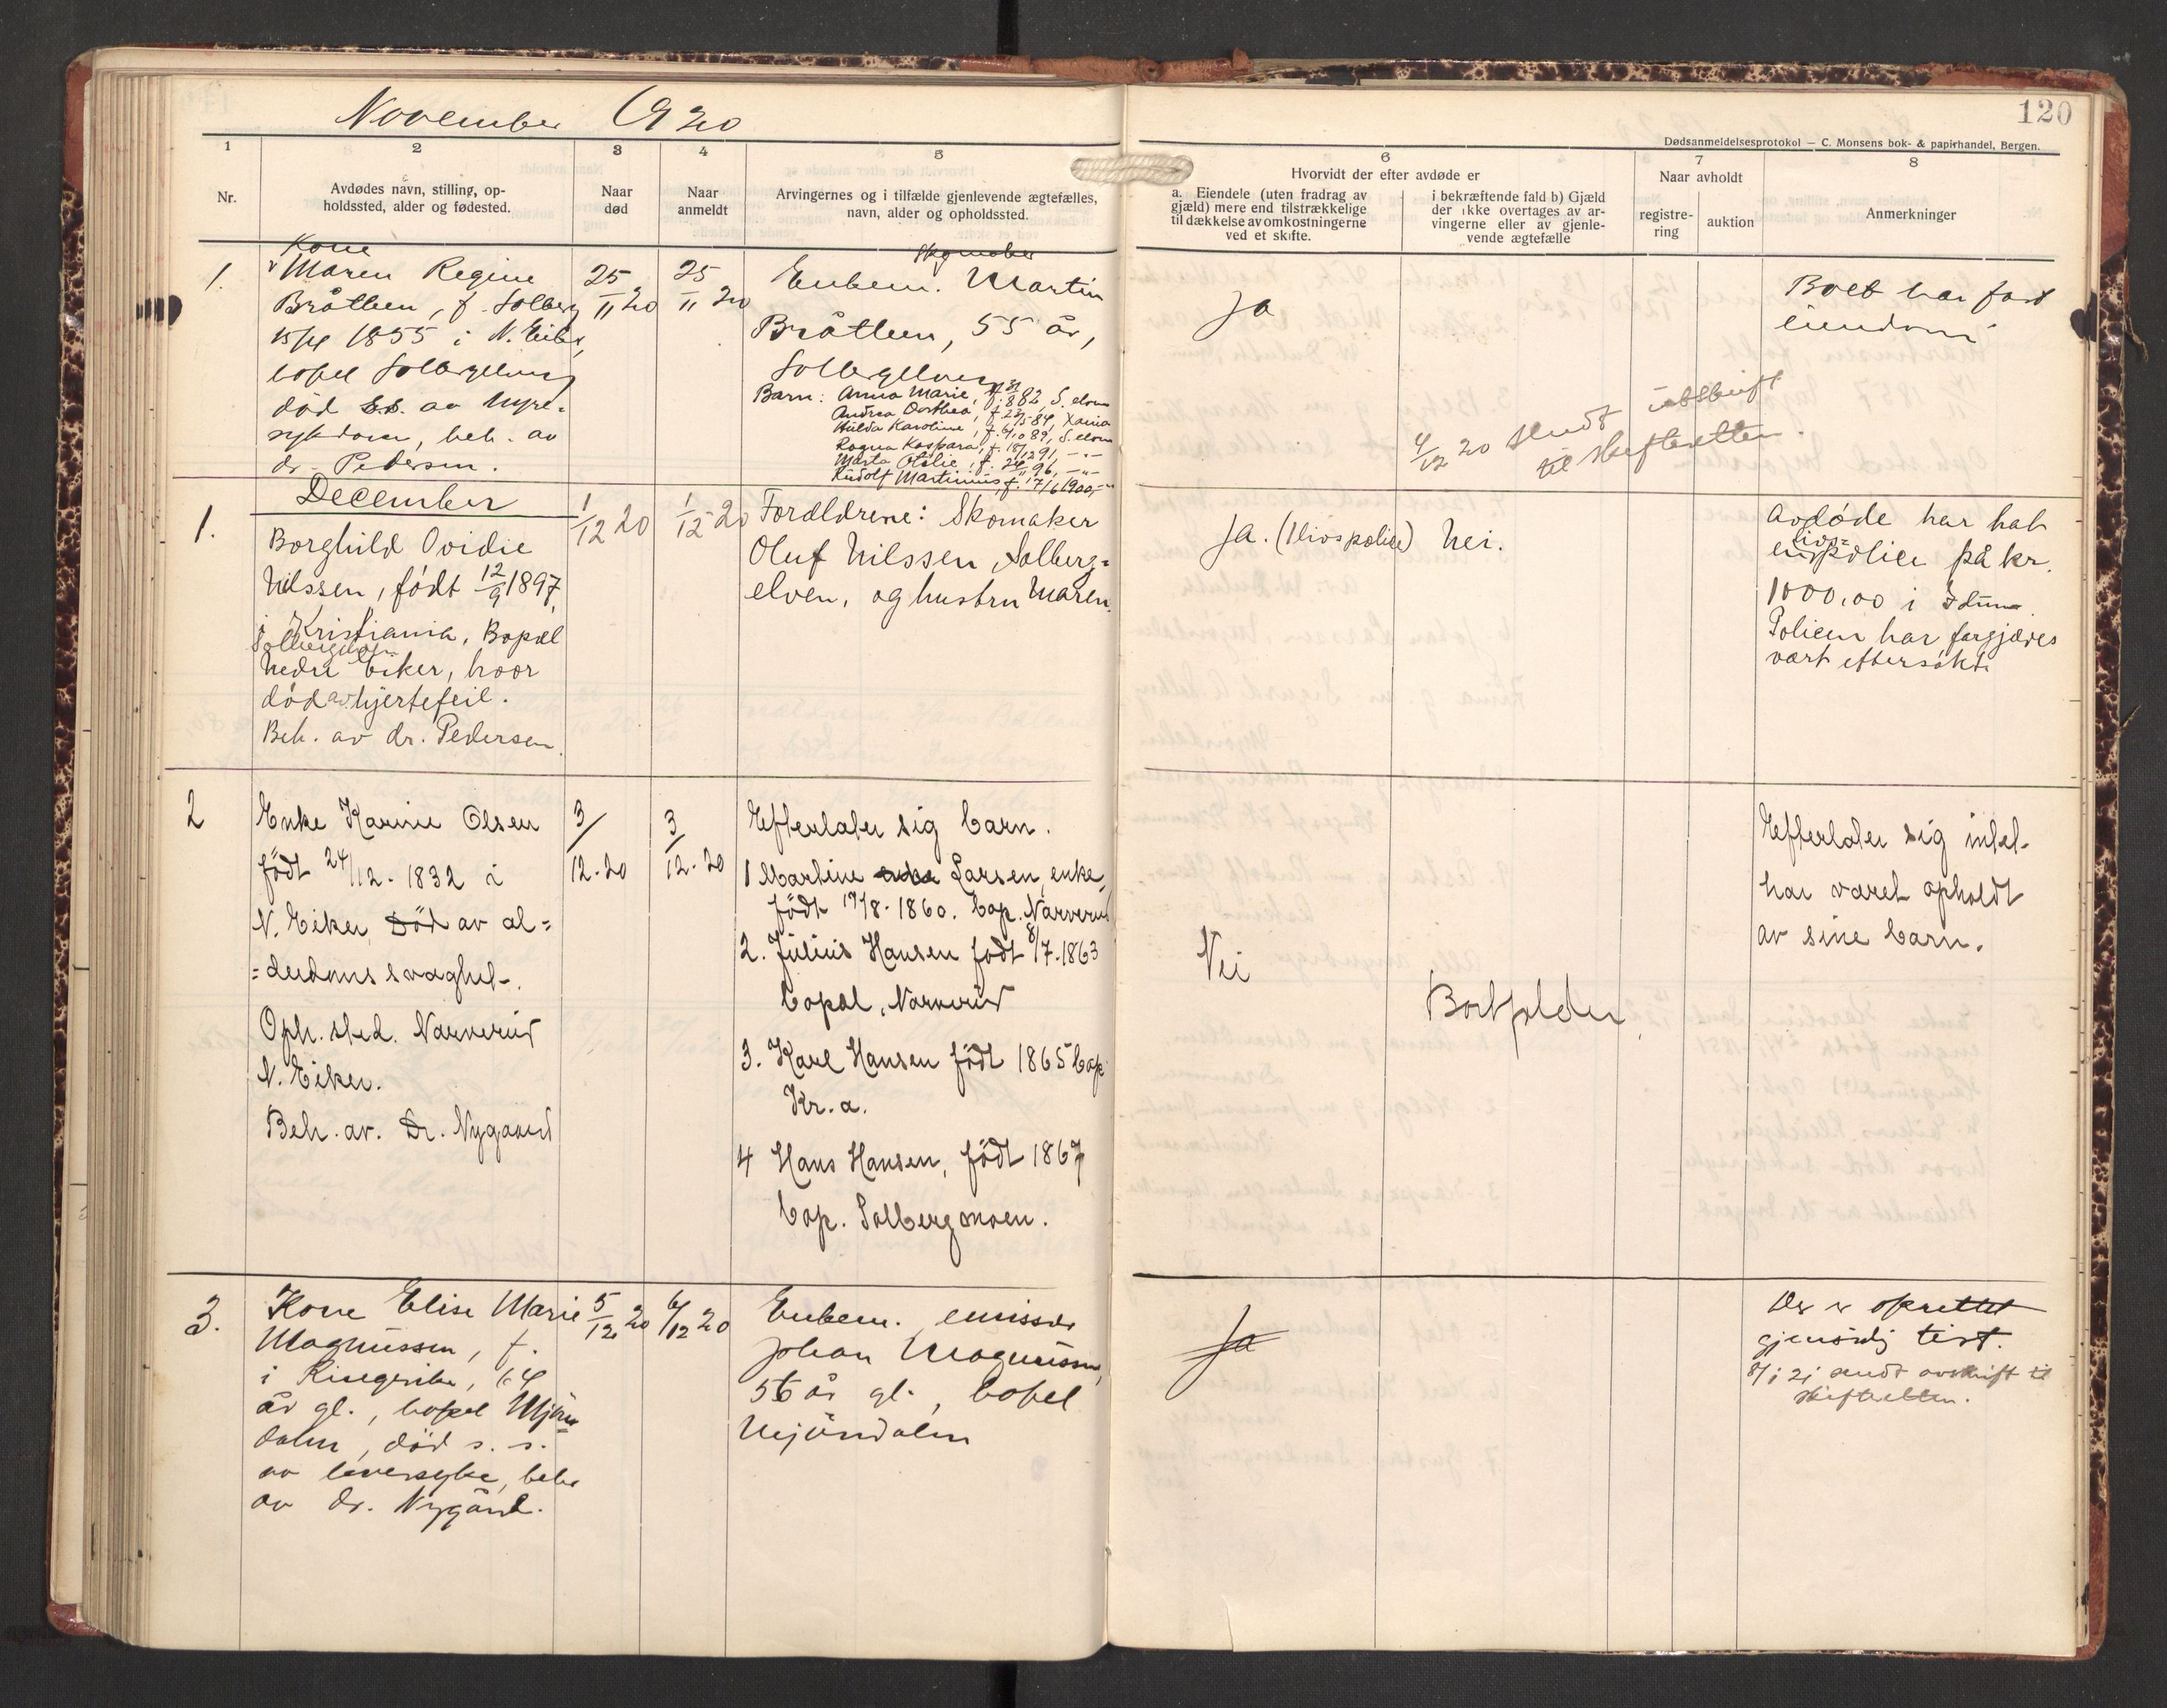 November 1920
120
Dødsanmeldelsesprotokol — C. Monsens bok- & papirhandel, Bergen.
1
2
3
4
5
6
7
8
Nr.
Avdødes navn, stilling, op-
holdssted, alder og fødested.
Naar
død
Naar
anmeldt
Arvingernes og i tilfælde gjenlevende ægtefælles,
navn, alder og opholdssted.
Hvorvidt der efter avdøde er
a. Eiendele (uten fradrag av
gjæld) mere end tilstrækkelige
til dækkelse av omkostningerne
ved et skifte.
i bekræftende fald b) Gjæld
der ikke overtages av ar-
vingerne eller av gjenle-
vende ægtefælle
Naar avholdt
registre-
ring
auktion
Anmerkninger
1.
Kone
Maren Regine
Bråthen, f. Solberg
15/4 1855 i N. Eiker,
bopel Solbergelven,
død s.s. av nyre-
sykdom, beh. av
dr. Pedersen.
25/11 20
25/11 20
skomaker
Enkem. Martin
Bråthen, 55 år,
Solbergelven
Barn: Anna Marie, f. 882, S. elven
Andrea Dorthea, f. 23/5-84, Xania
Hilda Karoline, f. 6/10 89, S. elven
Ragna Kaspara, f. 18/12 91, -"-
Marta Otilie, f. 24/11 96, -"-
Rudolf Martinius, f. 17/6 1900, -"-
Ja
Boet har fast
eiendom
4/12 20 sendt utskrift
til skifteretten.
December
1.
Borghild Ovidie
Nilssen, født 12/9 1897,
i Kristiania, Bopæl
Solbergelven
Nedre Eiker, hvor
død av hjertefeil.
Beh. av dr. Pedersen.
1/12 20
1/12 20
Forældrene: Skomaker
Oluf Nilssen, Solberg-
elven, og hustru Maren.
Ja. (livspolice)
Nei.
Avdøde har hat
en livs-police på kr.
1000,00 i Idun.
Policen har forgjæves
vært eftersøkt.
2
Enke Karine Olsen
født 24/12. 1832 i
N. Eiker, Død av al=
=derdoms svaghet.
Oph. sted. Narverud
N. Eiker.
Beh. av. Dr. Nygaard
3/12.20
3/12.20
Efterlater sig barn.
1 Martine enke Larsen, enke,
født 19/8. 1860. bop. Narverud
2. Julius Hansen født 8/7. 1863
bopæl, Narverud
3. Karl Hansen født 1865 bop
Kr. a.
4 Hans Hansen, født 1867
bop. Solbergmoen.
Nei
Bortfalder
Efterlater sig intet.
har været opholdt
av sine barn.
3.
Kone Elise Marie
Magnussen, f.
i Ringerike, 64
år gl., bopel Mjøn-
dalen, død s. s.
av leversyke, beh.
av dr. Nygård.
5/12 20
6/12 20
Enkem. emissær
Johan Magnussen,
56 år gl., bopel
Mjøndalen
Ja
Der er oprettet
gjensidig test.
8/1 21 sendt avskrift til
skifteretten.